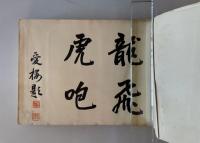 龍飛
虎咆
愛梅題